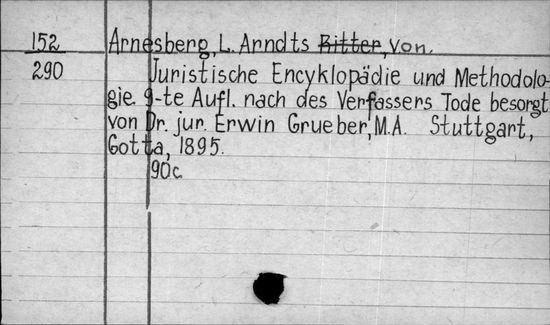 152 Arnesberg, L. Arndts Ritter, von.
290 Juristische Encyklopädie und Methodolo-
gie. 9-te Aufl. nach des Verfassers Tode besorgt
von Dr. jur. Erwin Grueber, M.A. Stuttgart,
Gotta, 1895.
90c.